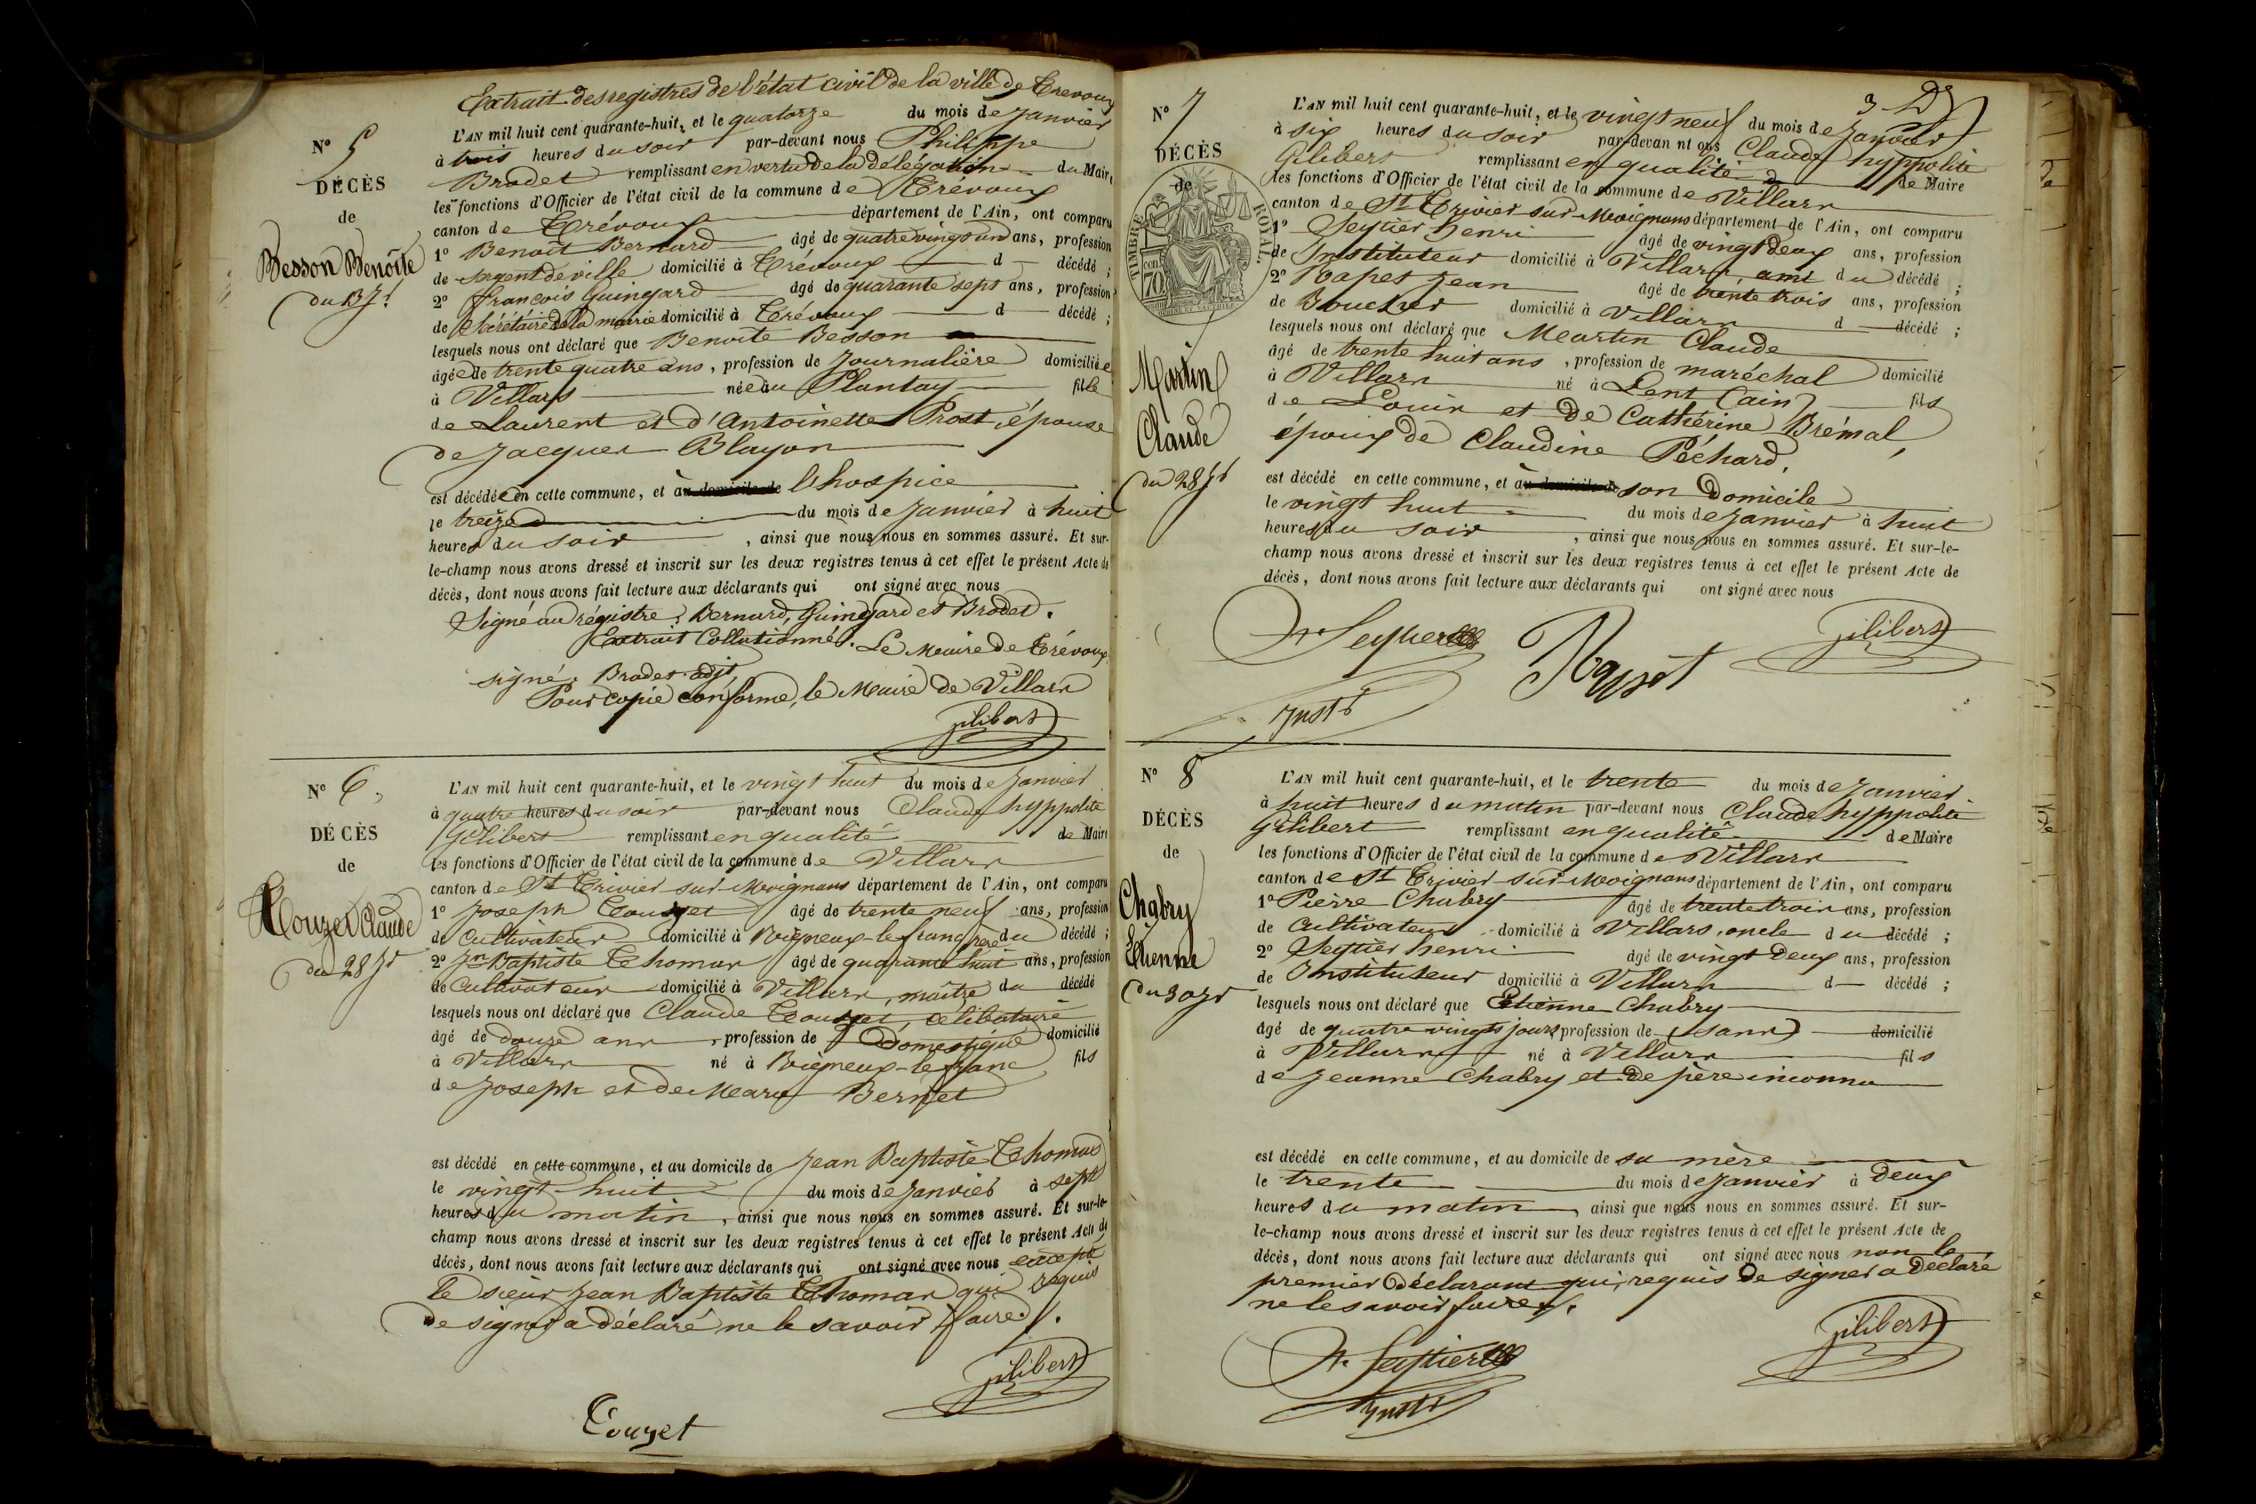 Extrait des registres de l'état civil de la ville de Trevoux
N° 5
DÉCÈS
de
Besson Benoîte
du 13 Jr
L'AN mil huit cent quarante-huit, et le quatorze du mois de Janvier
à trois heures du soir par-devant nous Philippe
Brodet remplissant en vertu de la délégation du Maire
les fonctions d'Officier de l'état civil de la commune de Trévoux
canton de Trévoux département de l'Ain, ont comparu
1° Benoît Bernard âgé de quatre vingt un ans, profession
de sergent de ville domicilié à Trévoux d décédé ;
2° François Guingard âgé de quarante sept ans, profession
de Sécrétaire de la mairie domicilié à Trévoux d décédé ;
lesquels nous ont déclaré que Benoite Besson
âgée de trente quatre ans, profession de Journalière domiciliée
à Villars née au Plantay fille
de Laurent et d'Antoinette Prost, épouse
de Jacques Blayon
est décédée en cette commune, et à au domicile de l'hospice
le treize du mois de Janvier à huit
heures du soir, ainsi que nous nous en sommes assuré. Et sur-
le-champ nous avons dressé et inscrit sur les deux registres tenus à cet effet le présent Acte de
décès, dont nous avons fait lecture aux déclarants qui ont signé avec nous
Signé au régistre : Bernard, Guingard et Brodet.
Extrait Collationné. Le Maire de Trévoux,
signé : Brodet adjt
Pour copie conforme, le Maire de Villars
Gilibert
N° 6
DÉCÈS
de
Touzet Claude
du 28 Jr
L'AN mil huit cent quarante-huit, et le vingt huit du mois de Janvier
à quatre heures du soir par-devant nous Claude hyppolite
Gilibert remplissant en qualité de Maire
les fonctions d'Officier de l'état civil de la commune de Villars
canton de St Trivier sur Moignans département de l'Ain, ont comparu
1° Joseph Touzet âgé de trente neuf ans, profession
de Cultivateur domicilié à Poigneux-le-franc père du décédé ;
2° Jn Baptiste Thomas âgé de quarante huit ans, profession
de Cultivateur domicilié à Villars, maître du décédé
lesquels nous ont déclaré que Claude Touzet, célibataire
âgé de douze ans, profession de Domestique domicilié
à Villars né à Poigneux-le-franc fils
de Joseph et de Marie Bernet
est décédé en cette commune, et au domicile de Jean Baptiste Thomas
le vingt-huit du mois de Janvier à sept
heures du matin, ainsi que nous nous en sommes assuré. Et sur-le-
champ nous avons dressé et inscrit sur les deux registres tenus à cet effet le présent Acte de
décès, dont nous avons fait lecture aux déclarants qui ont signé avec nous excepté
le sieur Jean Baptiste Thomas qui requis
de signer a déclaré ne le savoir faire.
Gilibert
Touzet
3 D
N° 7
DÉCÈS
de
TIMBRE ROYAL
70
Martin
Claude
du 28 Jr
L'AN mil huit cent quarante-huit, et le vingt neuf du mois de Janvier
à six heures du soir par-devant nous Claude hyppolite
Gilibert remplissant en qualité de Maire
les fonctions d'Officier de l'état civil de la commune de Villars
canton de St Trivier sur Moignans département de l'Ain, ont comparu
1° Seytier henri âgé de vingt deux ans, profession
de Instituteur domicilié à Villars, ami du décédé ;
2° Jean âgé de trente trois ans, profession
de Boucher domicilié à Villars d décédé ;
lesquels nous ont déclaré que Martin Claude
âgé de trente huit ans, profession de maréchal domicilié
à Villars né à Lent (ain) fils
de Louis et de Cathérine Brémal,
époux de Claudine Péchard,
est décédé en cette commune, et à au domicile de son domicile
le vingt huit du mois de Janvier à huit
heures du soir, ainsi que nous nous en sommes assuré. Et sur-le-
champ nous avons dressé et inscrit sur les deux registres tenus à cet effet le présent Acte de
décès, dont nous avons fait lecture aux déclarants qui ont signé avec nous
Gilibert
hr Seytier
Instr
N° 8
DÉCÈS
de
Chabry
Etienne
du 30 Jr
L'AN mil huit cent quarante-huit, et le trente du mois de Janvier
à huit heures du matin par-devant nous Claude hyppolite
Gilibert remplissant en qualité de Maire
les fonctions d'Officier de l'état civil de la commune de Villars
canton de St Trivier sur Moignans département de l'Ain, ont comparu
1° Pierre Chabry âgé de trente trois ans, profession
de Cultivateur domicilié à Villars, oncle du décédé ;
2° Seytier henri âgé de vingt deux ans, profession
de Instituteur domicilié à Villars d décédé ;
lesquels nous ont déclaré que Etienne Chabry
âgé de quatre vingts jours, profession de (sans) domicilié
à Villars né à Villars fils
de Jeanne Chabry et de père inconnu
est décédé en cette commune, et au domicile de sa mère
le trente du mois de Janvier à deux
heures du matin, ainsi que nous nous en sommes assuré. Et sur-
le-champ nous avons dressé et inscrit sur les deux registres tenus à cet effet le présent Acte de
décès, dont nous avons fait lecture aux déclarants qui ont signé avec nous non le
premier déclarant qui, requis de signer a déclaré
ne le savoir faire.
Gilibert
hr Seytier
Instr